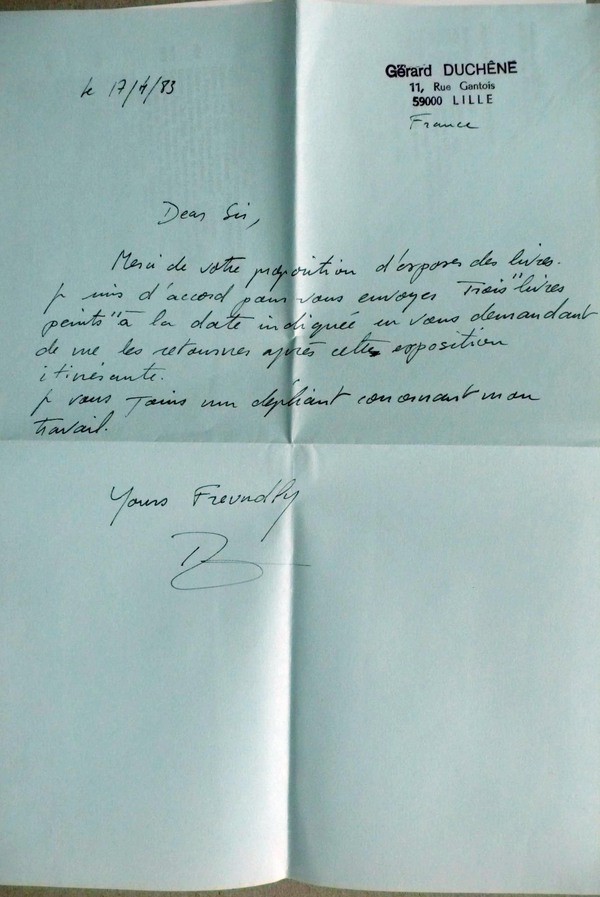 le 17/4/83
Gérard DUCHÊNE
11, Rue Gantois
59000 LILLE
France
Dear Sir,
Merci de votre proposition d'exposer des livres.
Je suis d'accord pour vous envoyer Trois "livres
peints" à la date indiquée en vous demandant
de me les retourner après cette exposition
itinérante.
Je vous joins un dépliant concernant mon
travail.
Yours Freundly